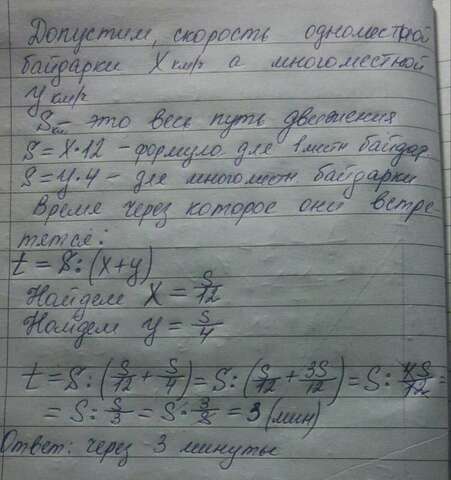 Допустим, скорость одноместной
байдарки X км/ч а многоместной
y км/ч
S км – это весь путь движения
S = X·12 – формула для 1 местн байдар.
S = y·4 – для многоместн. байдарки
Время через которое они встре-
тятся:
t = S : (x+y)
Найдем X = S/12
Найдем y = S/4
t = S : (S/12 + S/4) = S : (S/12 + 3S/12) = S : 4S/12 =
= S : S/3 = S · 3/S = 3 (мин)
Ответ: через 3 минуты